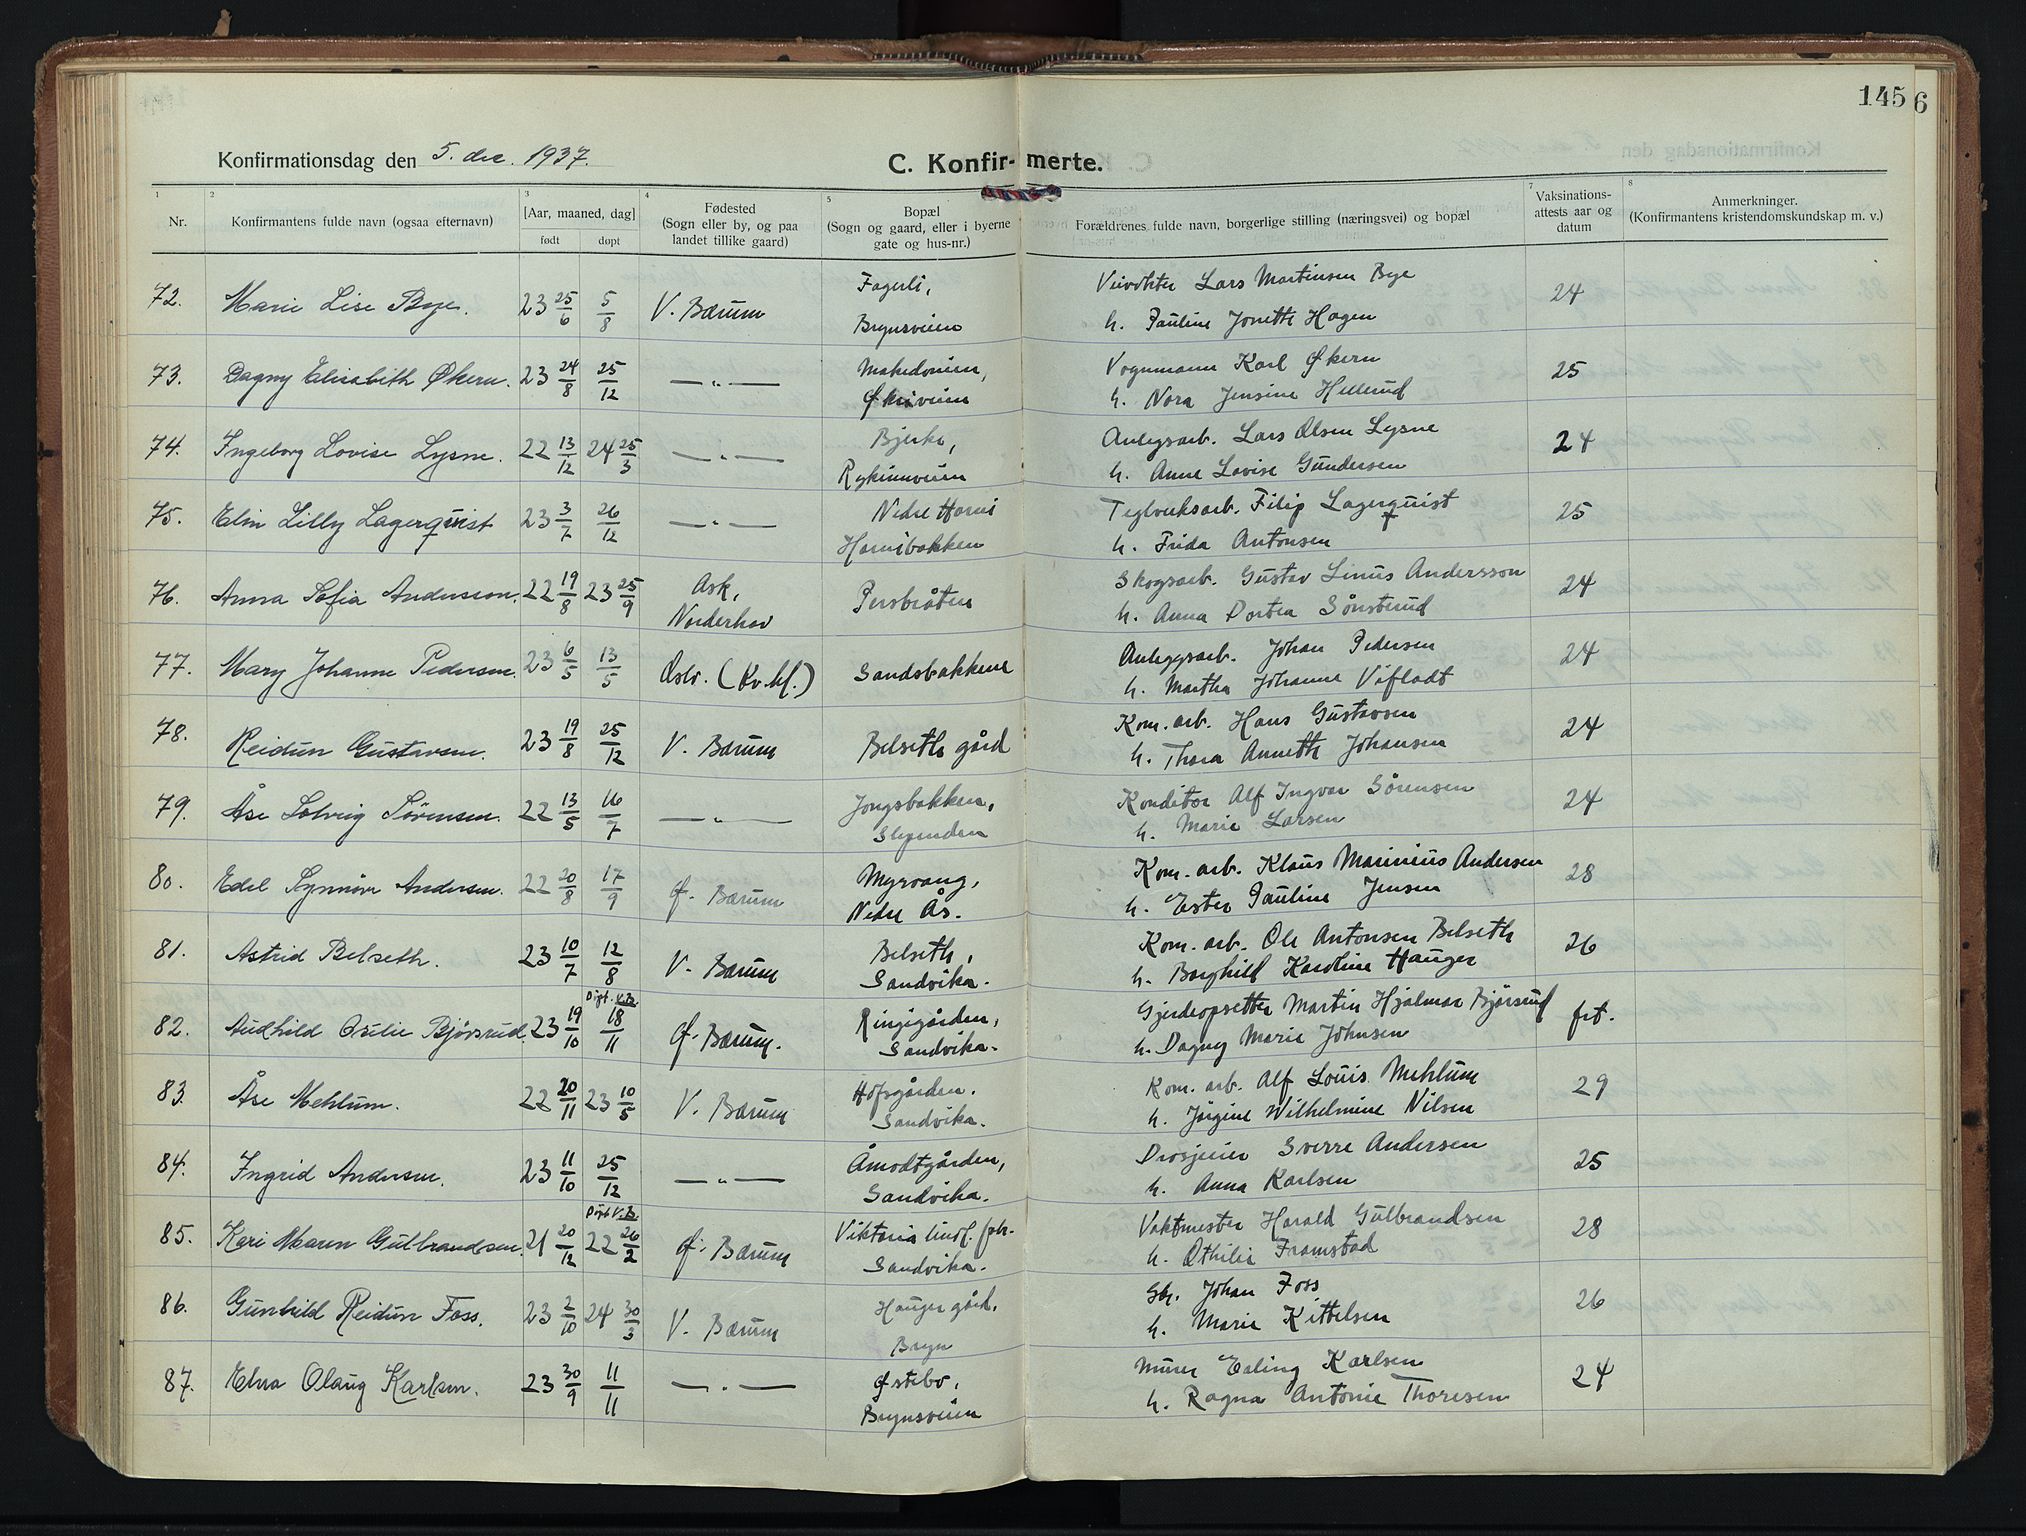 145 6
Konfirmationsdag den 5. dec. 1937.
C. Konfir- merte.
1 2 3 4 5 7 8
Nr.
Konfirmantens fulde navn (ogsaa efternavn)
[Aar, maaned, dag]
født døpt
Fødested
(Sogn eller by, og paa
landet tillike gaard)
Bopæl
(Sogn og gaard, eller i byerne
gate og hus-nr.)
Forældrenes fulde navn, borgerlige stilling (næringsvei) og bopæl
Vaksinations-
attests aar og
datum
Anmerkninger.
(Konfirmantens kristendomskundskap m. v.)
72. Marie Lise Bye. 23 25/6 5/8 V. Bærum Fagerli, Veivokter Lars Martinsen Bye 24
Brynsveien h. Pauline Jonette Hagen
73. Dagny Elisabeth Økern. 23 24/8 25/12 — " — Makedonien, Vognmann Karl Økern 25
Økriveien h. Nora Jensine Hellerud
74. Ingeborg Lovise Lysne. 22 13/12 24 25/3 — " — Bjerke, Anlegsarb. Lars Olsen Lysne 24
Rykinnveien h. Anne Lovise Gundersen
75. Elin Lilly Lagerquist 23 3/7 26/12 — " — Nedre Horni Teglverksarb. Filip Lagerquist 25
Hornibakken h. Frida Antonsen
76. Anna Sofia Andersson. 22 19/8 23 25/9 Ask, Persbråten Skogsarb. Gustav Linus Andersson 24
Norderhov h. Anna Dortea Sønsterud
77. Mary Johanne Pedersen. 23 6/5 13/5 Oslo. (Kv.kl.) Sandsbakkene Anleggsarb. Johan Pedersen 24
h. Martha Johanne Vifladt
78. Reidun Gustavsen. 23 19/8 25/12 V. Bærum Belseth gård Kom. arb. Hans Gustavsen 24
h. Thora Annette Johansen
79. Åse Solveig Sørensen. 22 13/5 16/7 — " — Jongsbakken, Konditor Alf Ingvar Sørensen 24
Slependen h. Marie Larsen
80. Edel Synnøve Andersen. 22 20/8 17/9 Ø. Bærum Myrvang, Kom. arb. Klaus Marinius Andersen 28
Nedre Ås. h. Ester Pauline Jensen
81. Astrid Belseth. 23 10/7 12/8 V. Bærum Belseth, Kom. arb. Ole Antonsen Belseth 26
Sandvika. h. Borghild Karoline Hauger
Døpt. V.B.
82. Audhild Otilie Bjørsrud. 23 19/10 18/11 Ø. Bærum. Ringigården, Gjerdeopsetter Martin Hjalmar Bjørsrud frt.
Sandvika. h. Dagny Marie Johnsen
83. Åse Mehlum. 22 20/11 23 10/5 V. Bærum Hofsgården. Kom. arb. Alf Louis Mehlum 29
Sandvika. h. Jørgine Wilhelmine Nilsen
84. Ingrid Andersen. 23 11/10 25/12 — " — Åmodtgården, Drosjeeier Sverre Andersen 25
Sandvika. h. Anna Karlsen
Døpt V.B.
85. Kari Maren Gulbrandsen. 21 20/12 22 26/2 Ø. Bærum Viktoria lindl. fabr. Vaktmester Harald Gulbrandsen 28
Sandvika. h. Othilie Framstad
86. Gunhild Reidun Foss. 23 2/10 24 30/3 V. Bærum Hauger gård, Gb. Johan Foss 26
Bryn h. Marie Kittelsen
87. Elna Olaug Karlsen. 23 30/9 11/11 — " — Østebo, Murer Erling Karlsen 24
Brynsveien h. Ragna Antonie Thoresen